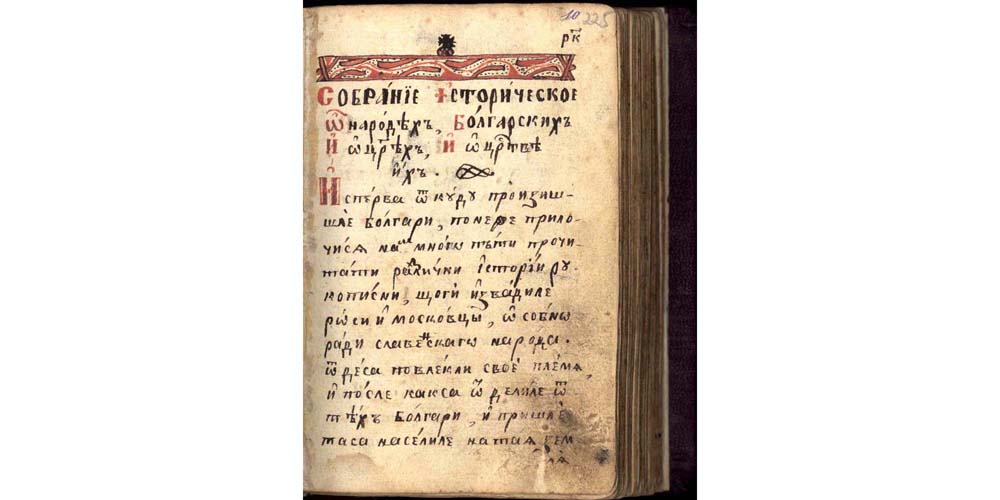 10 225
рк҃
Собра́нїе і҆стори́ческое
ѿ наро́дѣхъ, Бо́лгарскихъ
И҆ ѡ҆ цр҃ѣхъ, И҆ ѡ҆ црⷭ҇твѣ
и҆́хъ.
И҆сперва ѿ кꙋ́дꙋ произиш-
шле болгари, понеже прилꙋ-
чися на мⷩ҇ многѡ пъти прочи-
тати разли́чки історїи рꙋ-
кописни, щоги и҆зва́диле
рѹси и҆ московцы, ѡ҆ собнѡ
ра́ди славенскагѡ наро́да.
ѿ де́са повлекли своѐ пле́мѧ,
и҆ по́сле какса ѿделиле ѿ
тѣхъ болгари, и҆ пришлѐ
таса насе́лиле на таѧ зем
лѧ